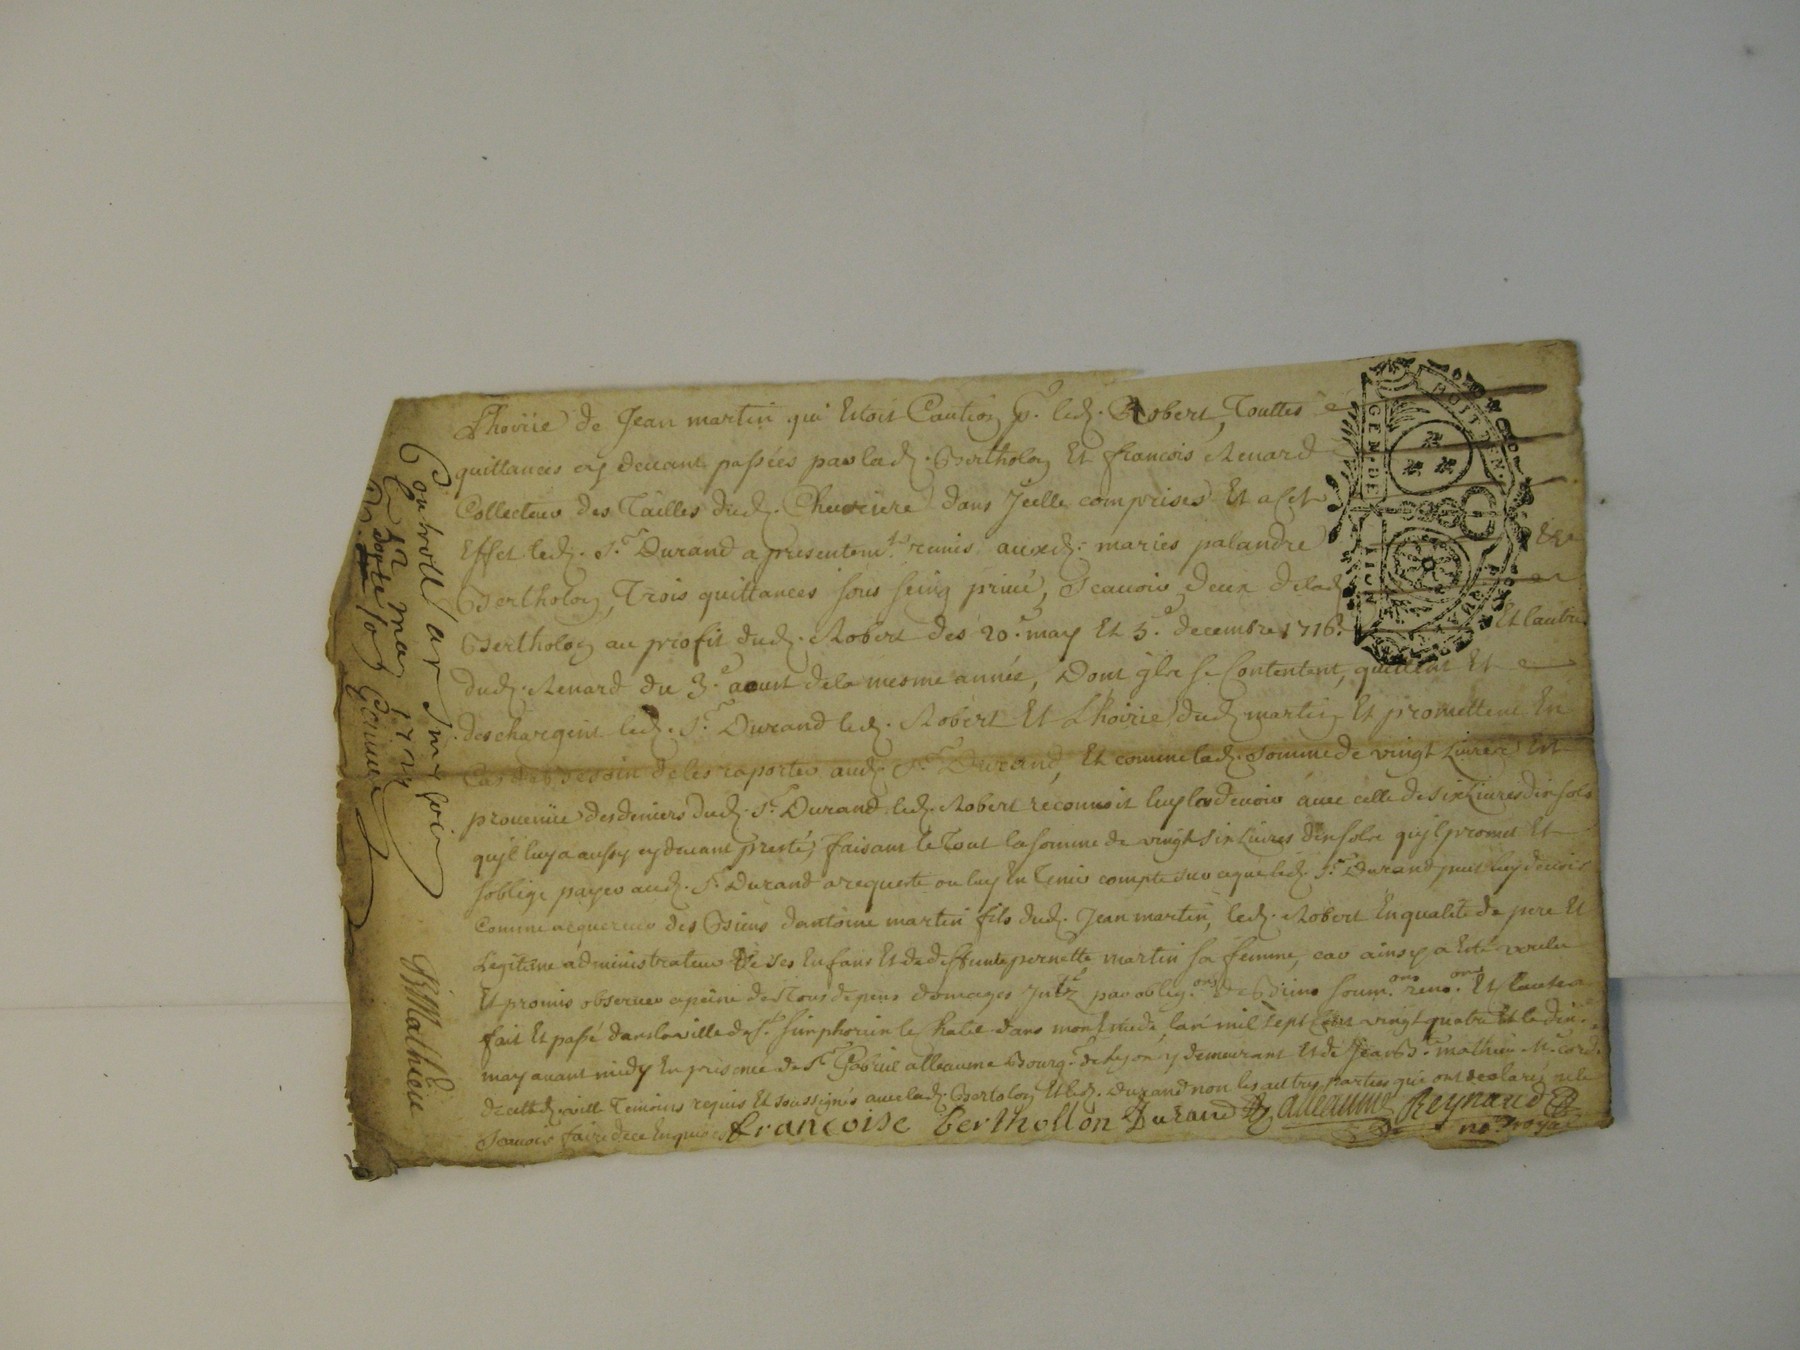 Lhoirie de Jean martin qui Estoit Caution pr. led. Robert, Touttes
quittances cy devant passées par lad. Bertholon Et francois Renard
Collecteur des Tailles dud. Chevriere dans Jcelle comprises Et a Cet
Effet led. Sr. Durand a presentemt. remis auxd. maries palandre Et
Bertholon, Trois quittances sous seing privé, Scavoir deux de lad.
Bertholon au profit dud. Robert des 20e. may Et 5e. decembre 1716. Et lautre
dud. Renard du 3e. aoust de la mesme année, Dont ils se Contentent, quittent Et
deschargent led. Sr. Durand led. Robert Et Lhoirie dud. martin Et promettent En
Cas de Besoin de les raporter aud. Sr. Durand, Et comme lad. somme de vingt Livres Est
provenüe des deniers dud. Sr. Durand led. Robert reconnoit luy la devoir avec celle de six Livres dix sols
qu'il luy a aussy cy devant presté, faisant le Tout la somme de vingt six Livres dix sols qu'il promet Et
soblige payer aud. Sr. Durand a requeste ou luy En Tenir compte sur ce que led. Sr. Durand peut luy devoir
Comme acquereur des Biens dantoine martin fils dud. Jean martin, led. Robert En qualité de pere Et
Legitime administrateur de ses Enfans Et de deffunte pernette martin sa femme, car ainsy a Esté voulu
Et promis observer a peine de Tous depens domages par oblig.ons de Biens soum.ons reno.ons Et clauses
fait Et passé dans la ville de St. Simphorien le Chatel dans mon Etude, lan mil sept Cent vingt quatre Et le dix
may avant midy En presence de Sr. Gabriel alleaume Bourg. de Lyon y demeurant Et de Jean B. mathieu Me. cord.
de lad. ville Temoins requis Et soussignés avec lad. Bertolon Et led. Durand non les autres parties qui ont declaré ne le
Scavoir faire de ce Enquis
francoise berthollon Durand alleaume Reynaud
no. royal
GEN. DE LION
Controllé
may 1724
JB Mathieu